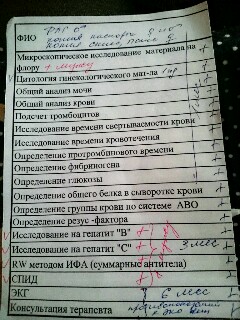 ФИО
копия паспорта
копия
Микроскопическое исследование материала на
флору +
Цитология гинекологического мат-ла
Общий анализ мочи
Общий анализ крови
Подсчет тромбоцитов
Исследование времени свертываемости крови
Исследование времени кровотечения
Определение протромбинового времени
Определение фибриногена
Определение глюкозы
Определение общего белка в сыворотке крови
Определение группы крови по системе АВО
Определение резус -фактора
Исследование на гепатит "В" +
Исследование на гепатит "С" + 3 мес
RW методом ИФА (суммарные антитела)
СПИД
ЭКГ 6 мес
Консультация терапевта